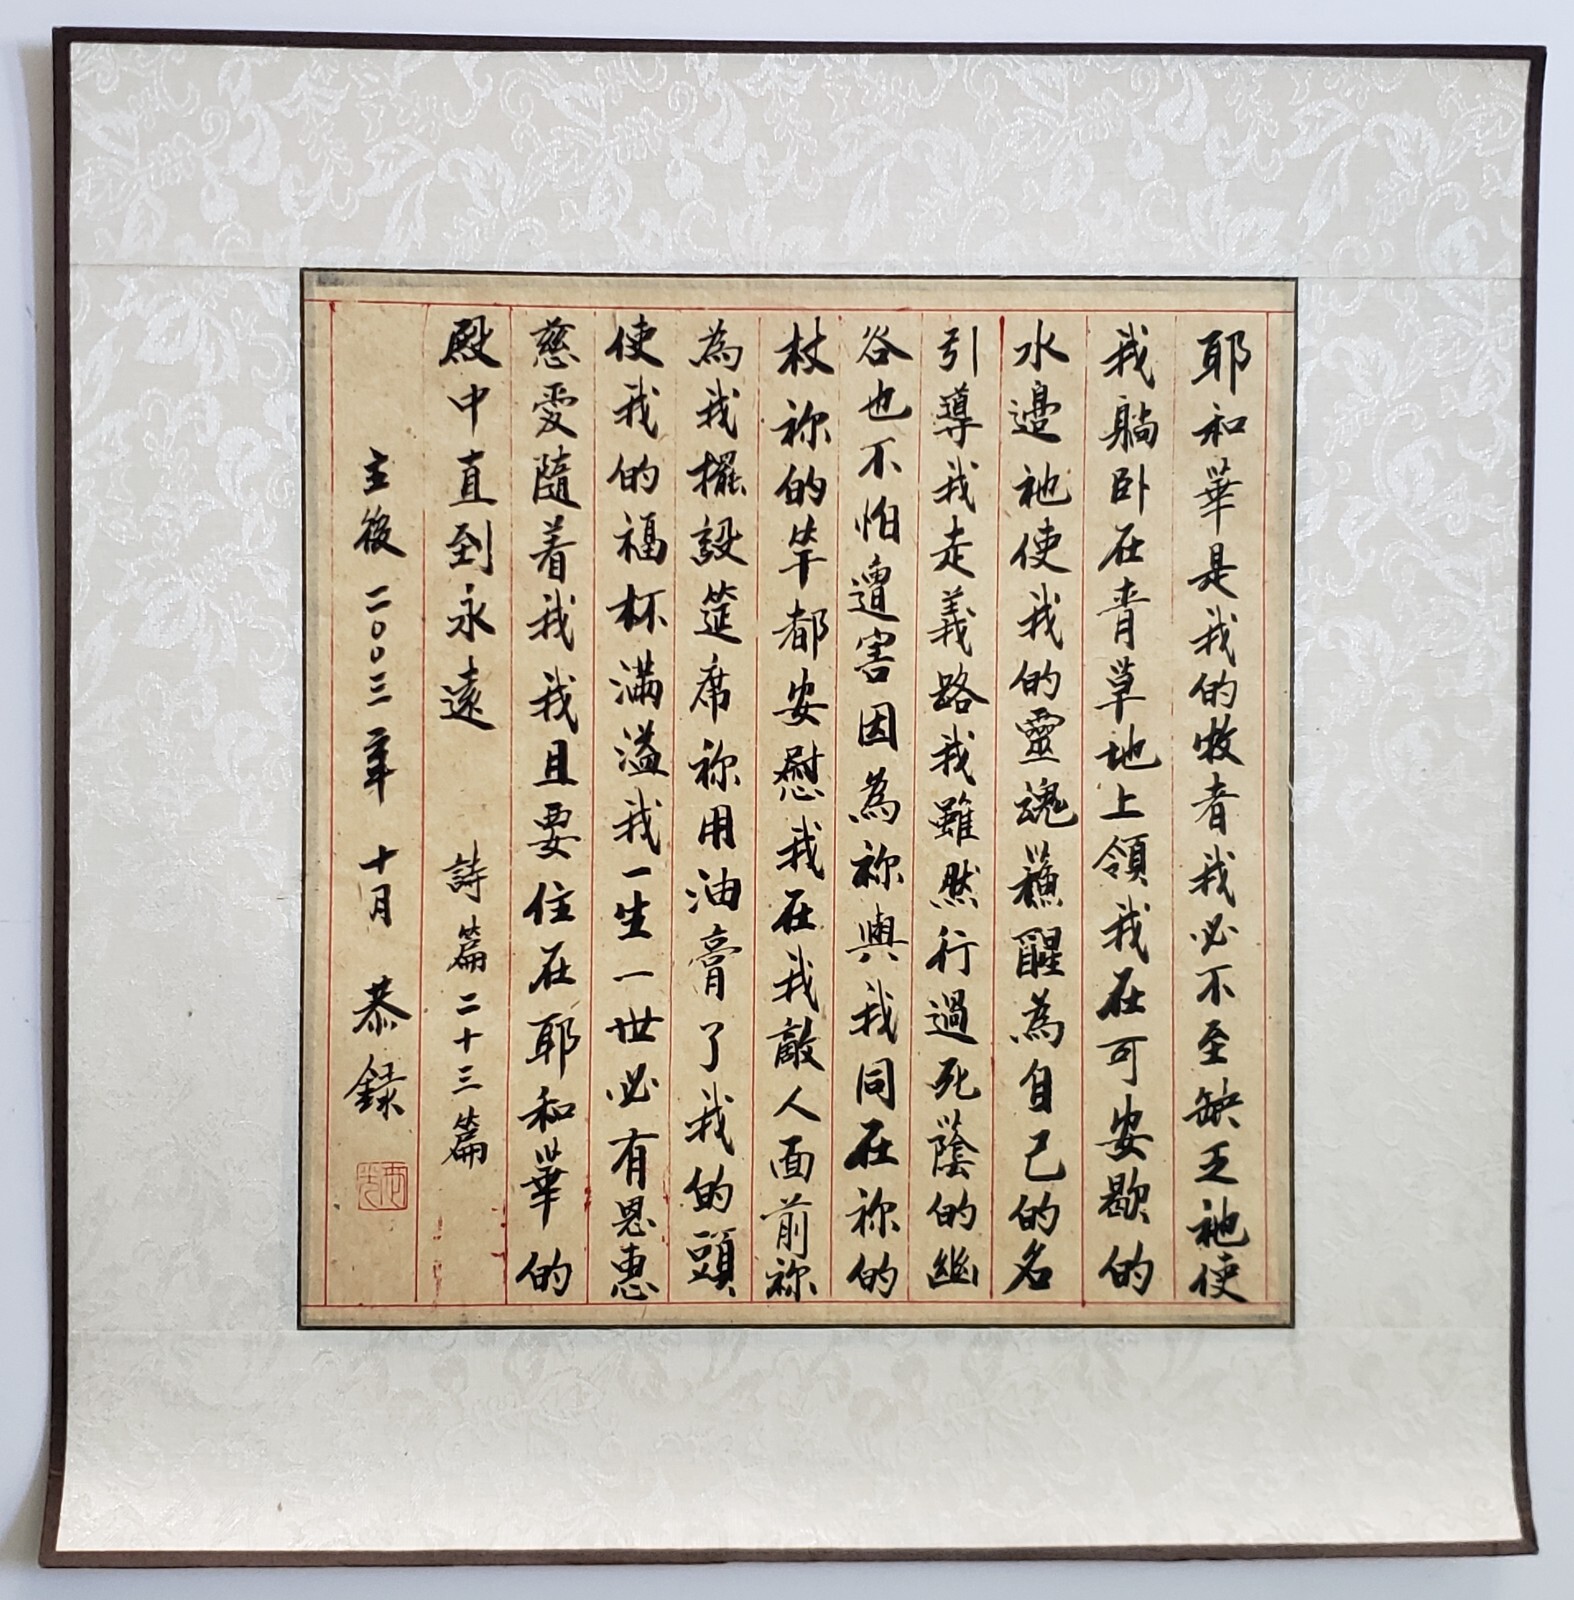 耶和華是我的牧者我必不至缺乏祂使
我躺卧在青草地上領我在可安歇的
水邊祂使我的靈魂蘓醒為自己的名
引導我走義路我雖然行過死蔭的幽
谷也不怕遭害因為祢與我同在祢的
杖祢的竿都安慰我在我敵人面前祢
為我擺設筵席祢用油膏了我的頭
使我的福杯滿溢我一生一世必有恩惠
慈愛隨着我我且要住在耶和華的
殿中直到永遠 詩篇二十三篇
主後二〇〇三年 十月 恭錄